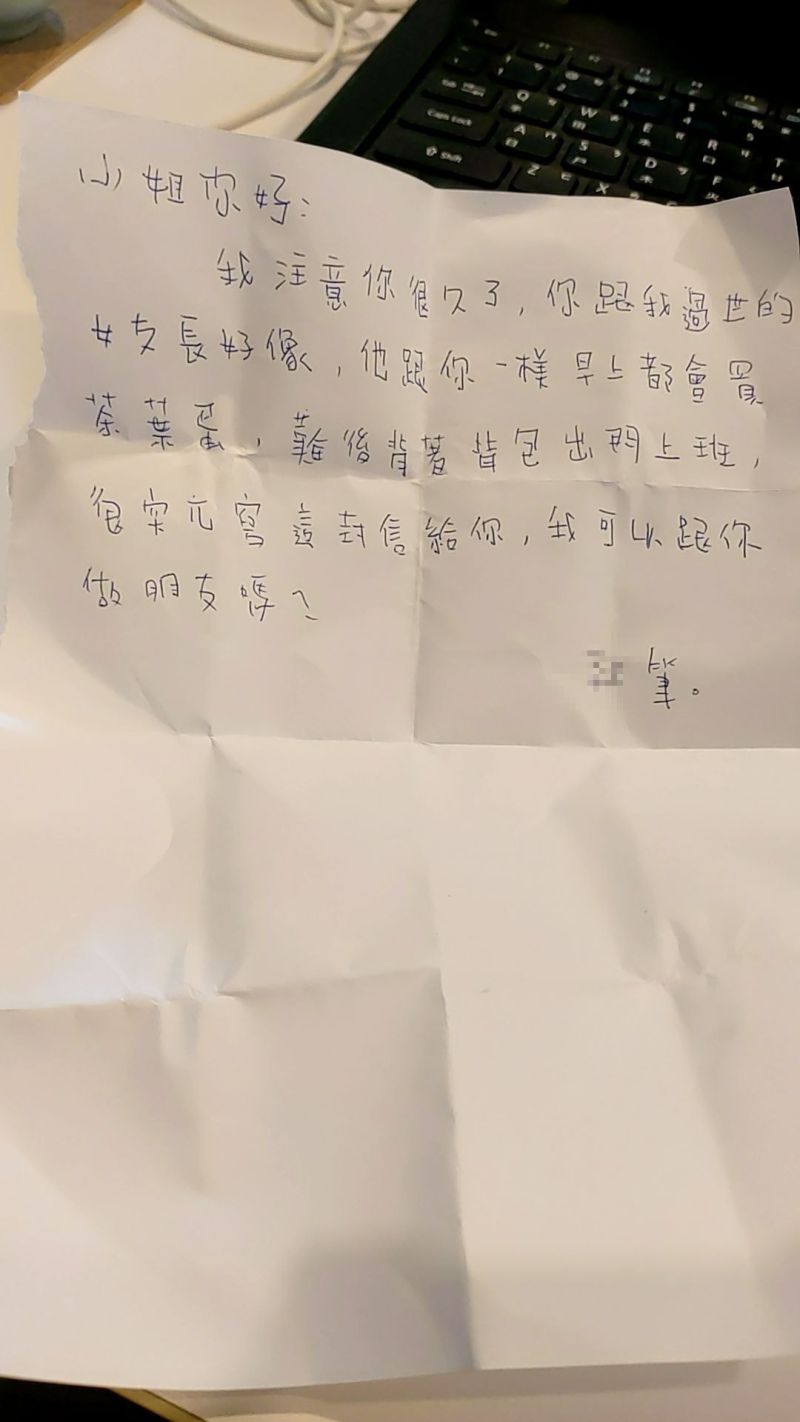 小姐你好:
我注意你很久了,你跟我過世的
女友長好像,他跟你一樣早上都會買
茶葉蛋,難後背著背包出門上班,
很突兀寫這封信給你,我可以跟你
做朋友嗎?
筆。
Caps Lock
Shift
Q
W
E
R
T
A
S
D
F
Z
X